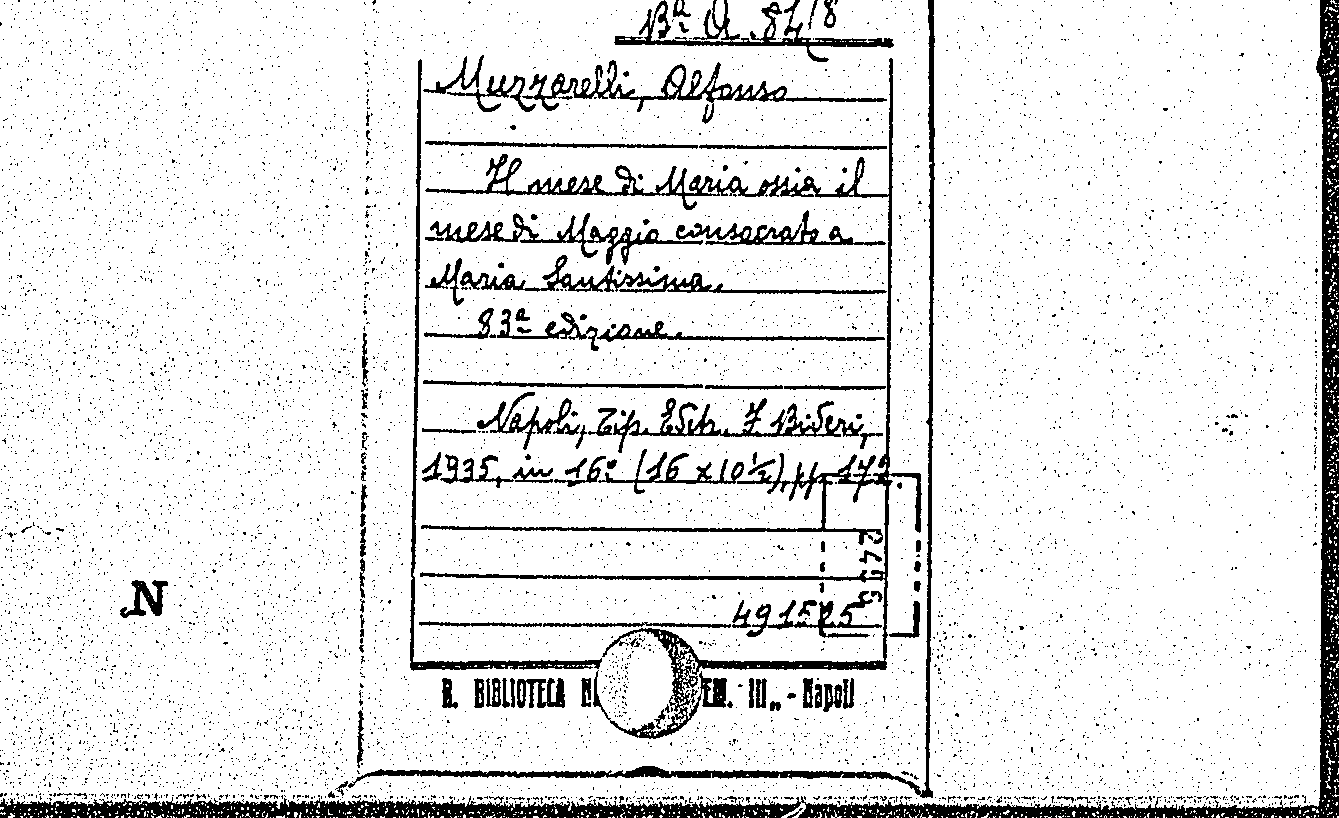 Bª Q. 84/8
Muzzarelli, Alfonso
Il mese di Maria ossia il
mese di Maggio consacrato a
Maria Santissima.
83ª edizione.
Napoli, Tip. Editr. F Bideri,
1935, in 16º (16 x 10 ½), pp 172.
2495
491525
N
R. BIBLIOTECA EM. III„ - Napoli